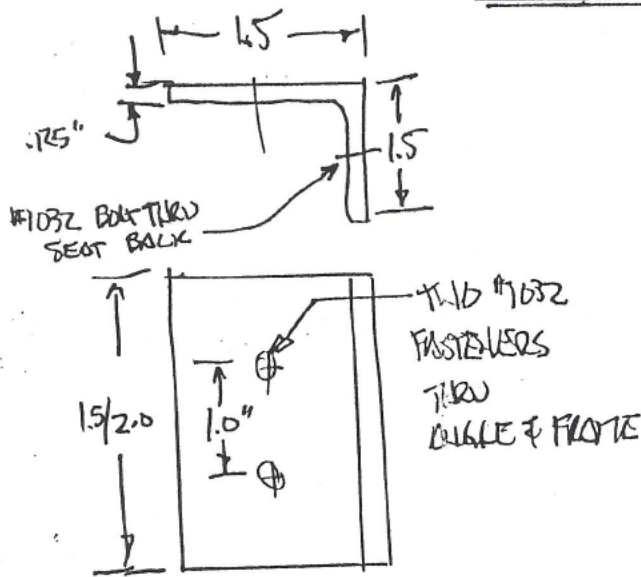 1.5
.125"
1.5
#1032 BOLT THRU
SEAT BACK
TWO #1032
FASTENERS
THRU
ANGLE & FRAME
1.5/2.0
1.0"